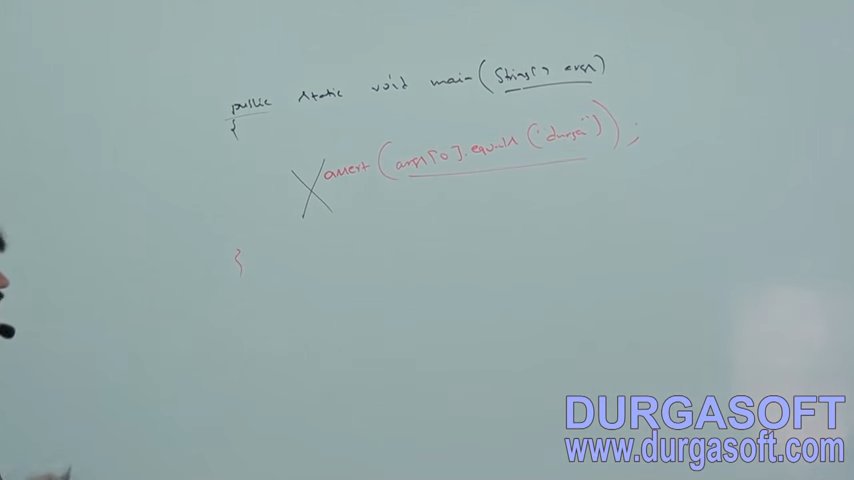 public static void main(String[] args)
{
assert(args[0].equals("durga"));
}
DURGASOFT
www.durgasoft.com